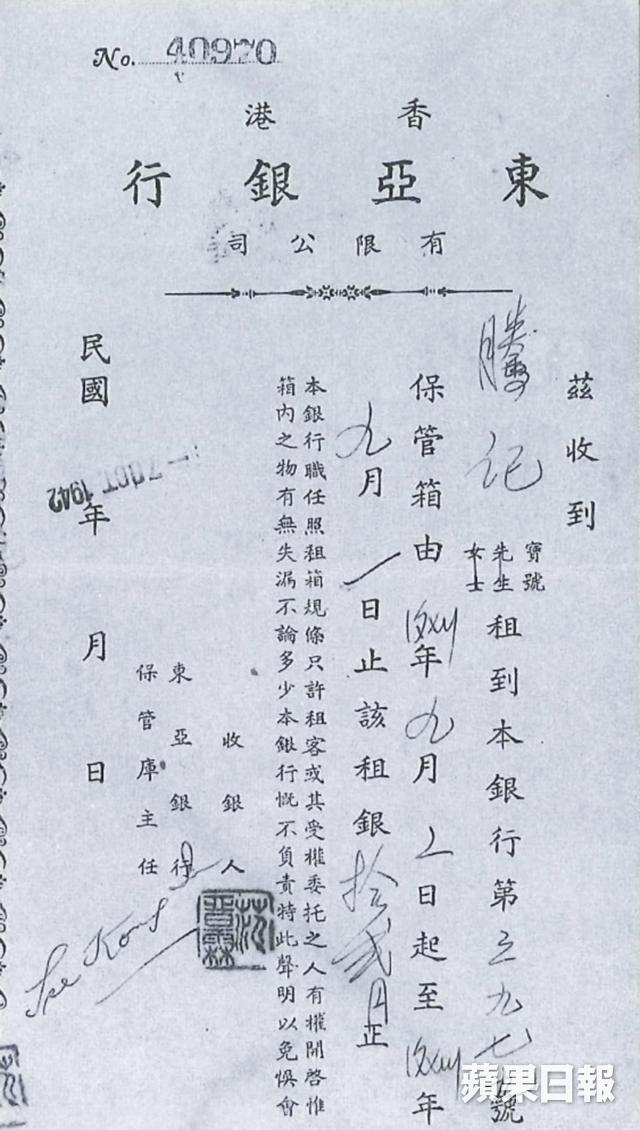 No. 40970
香港
東亞銀行
有限公司
茲收到
騰記 寶號 先生 女士 租到本銀行第三九七號
保管箱由年九月日起至年
九月一日止該租銀拾貳円正
本銀行職任照租箱規條只許租客或其受權委托之人有權開啓惟
箱內之物有無失漏不論多少本銀行概不負責特此聲明以免悞會
收銀人
東亞銀行
保管庫主任
民國年月日
-7 OCT 1942
蘋果日報